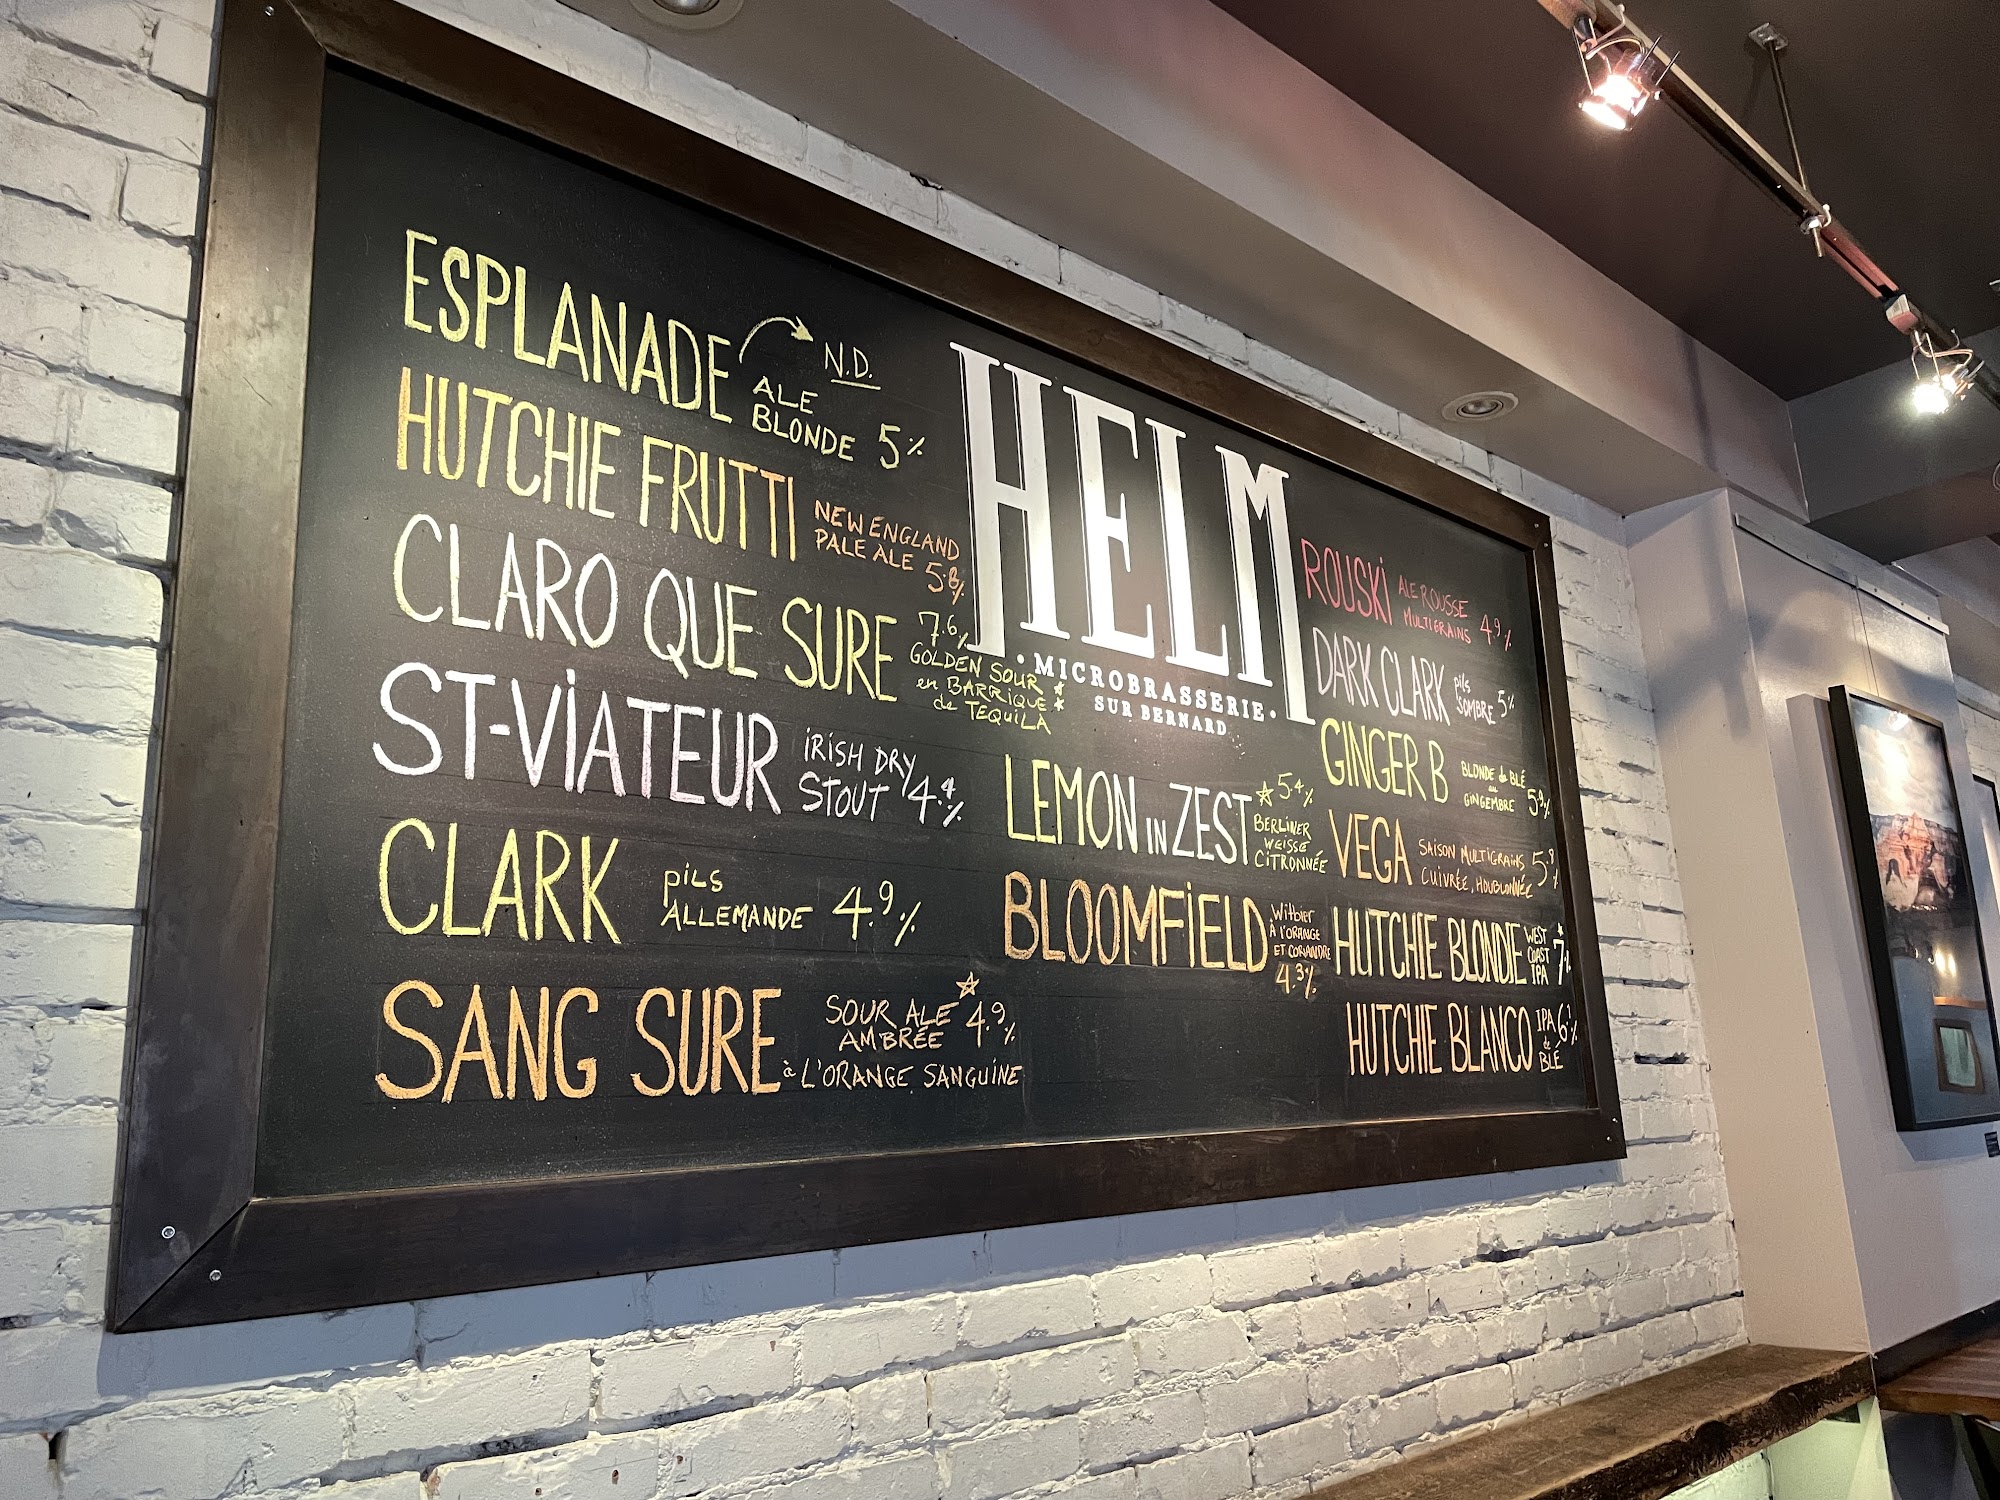 ESPLANADE N.D.
ALE
BLONDE 5%
HUTCHIE FRUTTI NEW ENGLAND
PALE ALE 5.8%
CLARO QUE SURE 7.6%
GOLDEN SOUR
en BARRIQUE
de TEQUILA
ST-VIATEUR IRISH DRY
STOUT 4.4%
CLARK PILS
ALLEMANDE 4.9%
SANG SURE SOUR ALE
AMBRÉE 4.9%
à L'ORANGE SANGUINE
HELM
• MICROBRASSERIE •
SUR BERNARD
LEMON IN ZEST 5.4%
BERLINER
WEISSE
CITRONNÉE
BLOOMFIELD Witbier
À l'ORANGE
ET CORIANDRE
4.3%
ROUSKI ALE ROUSSE
MULTIGRAINS 4.9%
DARK CLARK pils
SOMBRE 5%
GINGER B BLONDE de BLÉ
au
GINGEMBRE 5.9%
VEGA SAISON MULTIGRAINS
CUIVRÉE, HOUBLONNÉE 5.9%
HUTCHIE BLONDIE WEST
COAST
IPA 7%
HUTCHIE BLANCO IPA
de
BLÉ 6.1%